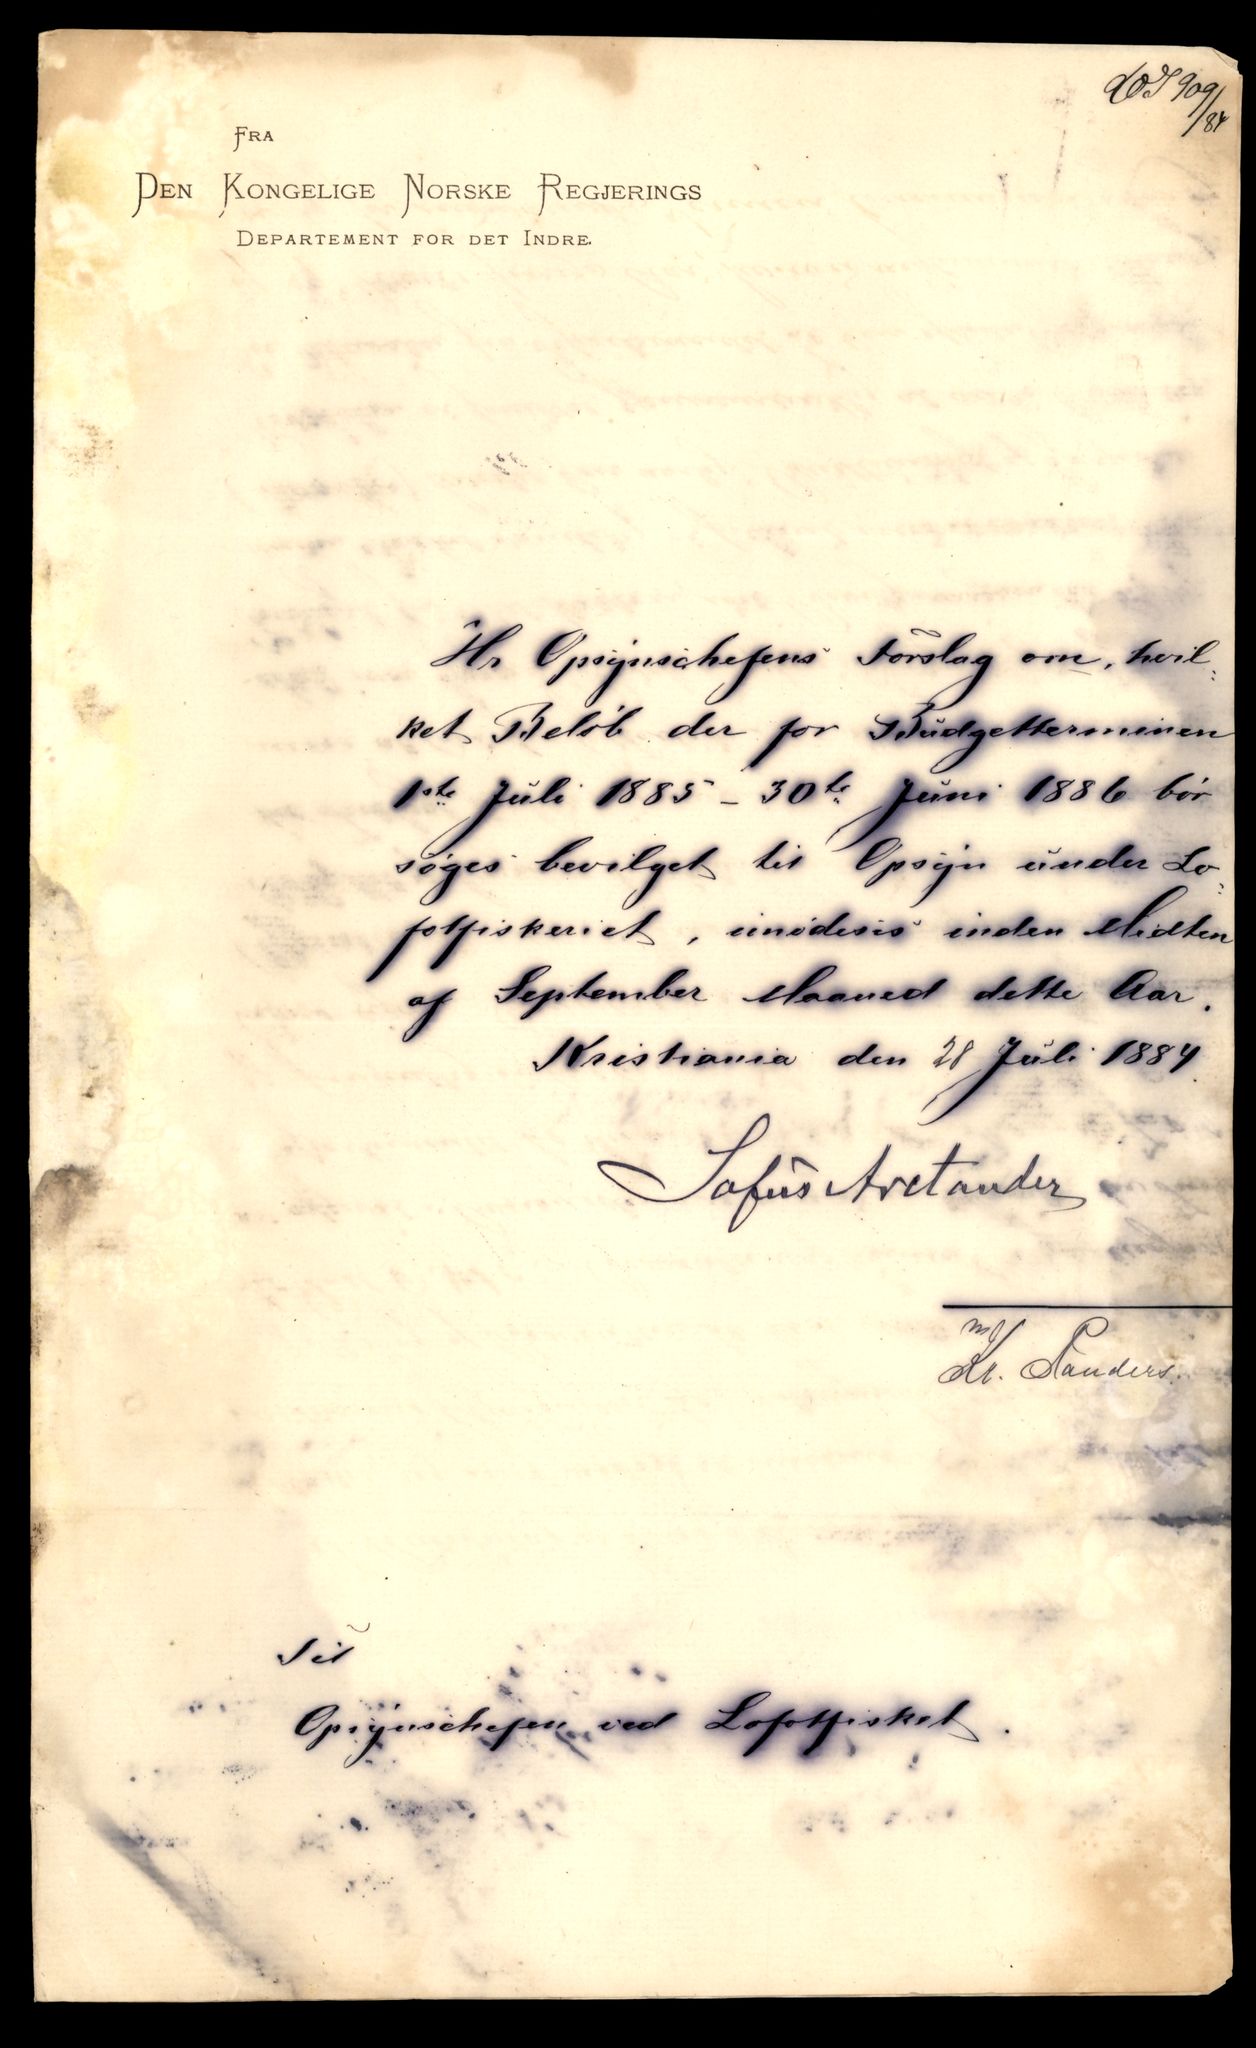 909/84
FRA
DEN KONGELIGE NORSKE REGJERINGS
DEPARTEMENT FOR DET INDRE.
Hr Opsynschefens Forslag om, hvil-
ket Beløb der for Budgetterminen
1ste Juli 1885 - 30te Juni 1886 bør
søges bevilget til Opsyn under Lo-
fotfiskeriet, imødesees inden Midten
af September Maaned dette Aar.
Kristiania den 28 Juli 1884
Sofus Arctander
Kr. Sanders.
Til
Opsynschefen ved Lofotfisket.